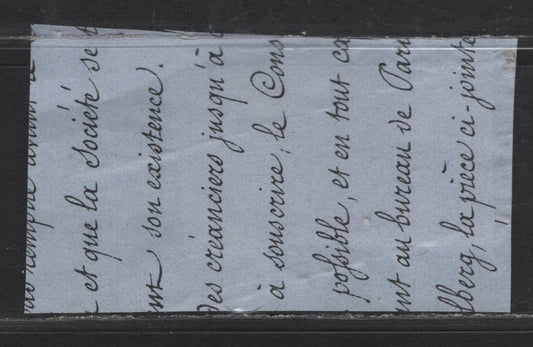 compte
et que la Société se
son existence.
des créanciers jusqu'à
à souscrire, le Cons
possible, et en tout ca
nt au bureau de Pari
lberg, la pièce ci-jointe